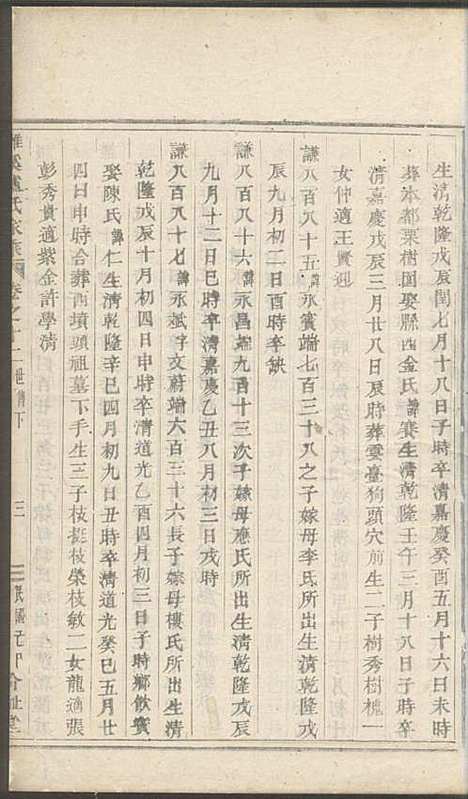 生清乾隆戊辰閏七月十八日子時卒清嘉慶癸酉五月十六日未時
葬本都栗樹園娶縣西金氏諱賽生清乾隆壬午三月十八日子時卒
清嘉慶戊辰三月廿八日辰時葬雲臺狗頭穴前生二子樹秀樹槐一
女仲適王賓迎
謙八百八十五諱永賓端七百三十八之子嫁母李氏所出生清乾隆戊
辰九月初二日酉時卒缺
謙八百八十六諱永昌端九百十三次子嫁母應氏所出生清乾隆戊辰
九月十二日巳時卒清嘉慶乙丑八月初三日戌時
謙八百八十七諱永斌字文蔚端六百三十六長子嫁母樓氏所出生清
乾隆戊辰十月初四日申時卒清道光乙酉四月初三日子時鄉飲賓
娶陳氏諱仁生清乾隆辛巳四月初九日丑時卒清道光癸巳五月廿
四日申時合葬西墳頭祖墓下手生三子枝挺枝榮枝敏二女龍適張
彭秀貴適紫金許學清
盧氏家乘 卷之十二 世傳下 三 民國 合祉堂